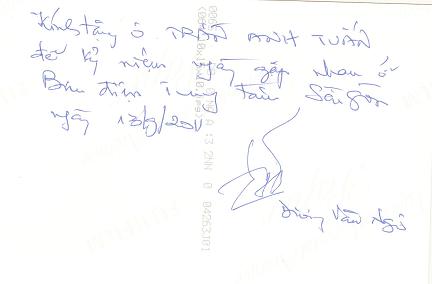 Kính tặng ô TRẦN ANH TUẤN
để kỷ niệm ngày gặp nhau ở
Bưu điện Trung tâm Sài gòn
ngày 13/9/201
Dương Văn Ngộ